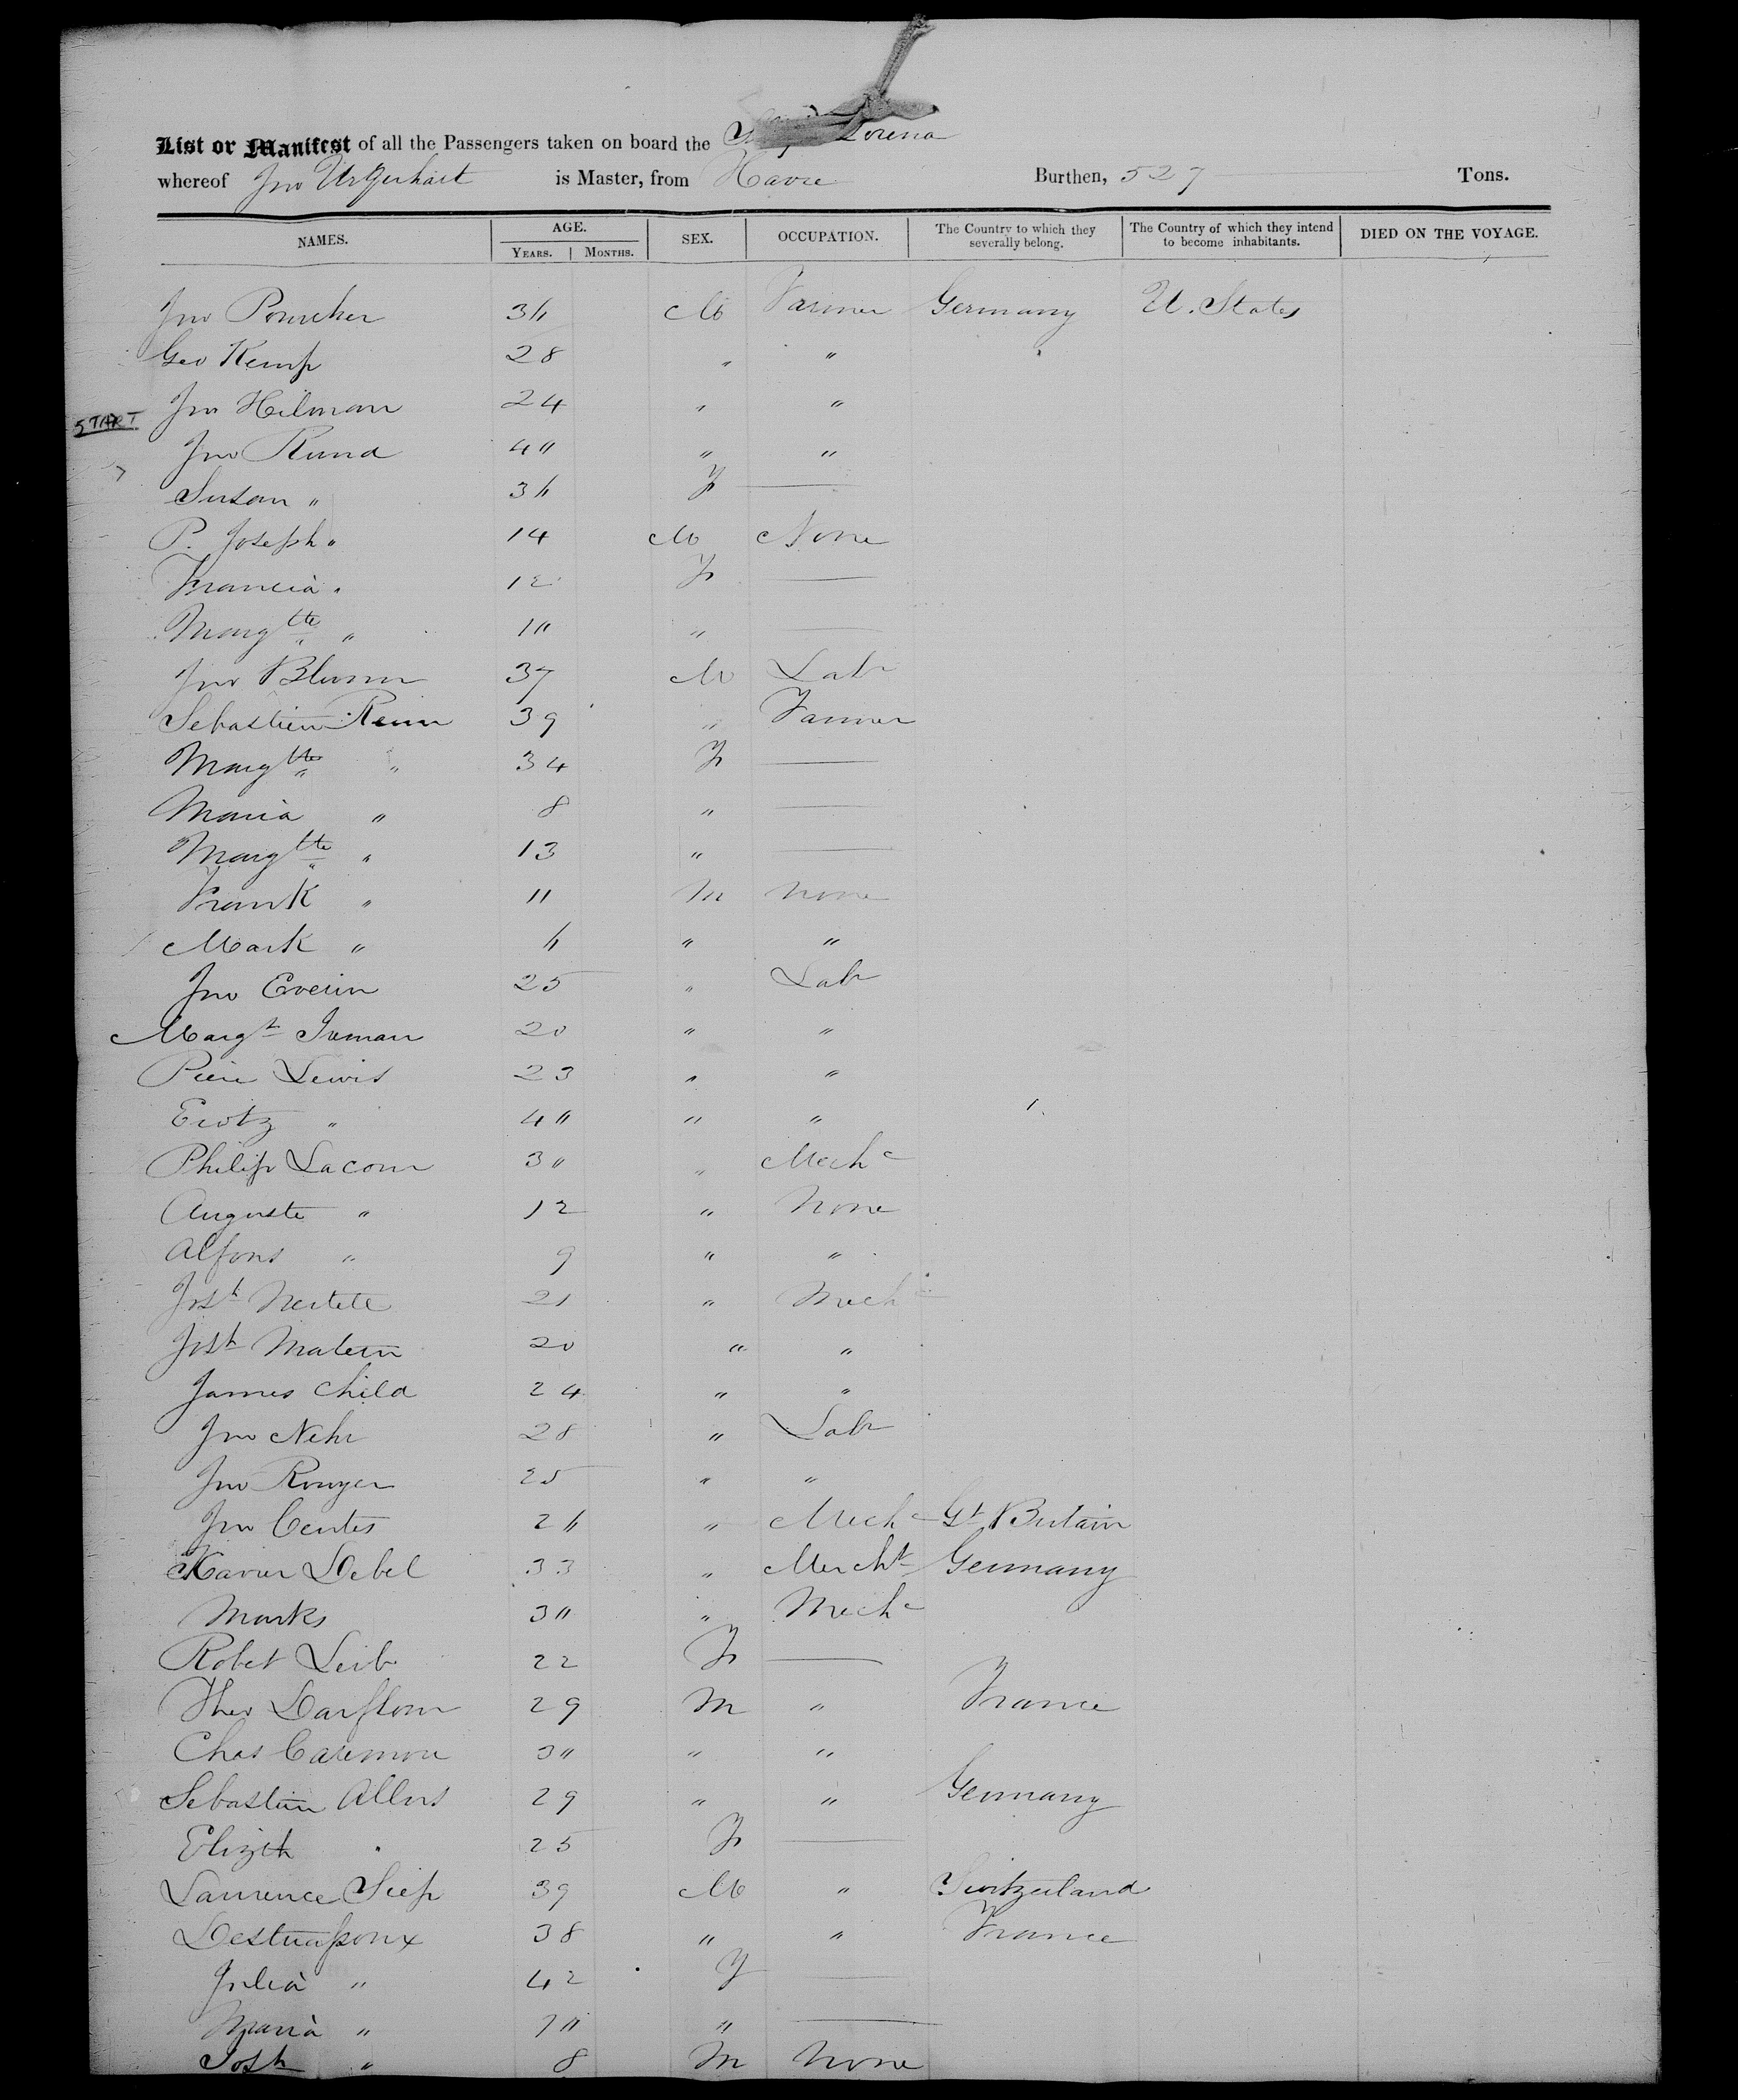 List or Manifest of all the Passengers taken on board the Ship Lorena
whereof Jno Urquhart is Master, from Havre Burthen, 527 Tons.
NAMES. AGE. SEX. OCCUPATION. The Country to which they severally belong. The Country of which they intend to become inhabitants. DIED ON THE VOYAGE.
YEARS. MONTHS.
Jno Pourcher 36 M Farmer Germany U. States
Geo Kemp 28 " "
START
Jno Hilman 24 " "
Jno Rund 4" " "
Susan " 36 F —
P. Joseph " 14 M None
Francia " 12 F —
Margtte " 1" " —
Jno Blumm 37 M Labr
Sebastien Renn 39 " Farmer
Margtte " 34 F —
Maria " 8 " —
Margtte " 13 " —
Frank " 11 M None
Mark " 6 " "
Jno Everin 25 " Labr
Margt Inman 20 " "
Piere Lewis 23 " "
Erotz " 4" " "
Philip Lacour 3" " Mechc
Auguste " 12 " None
Alfons " 9 " "
Josh Nertell 21 " Mechc
Josh Matern 20 " "
James Child 24 " "
Jno Nehr 28 " Labr
Jno Rouyer 25 " "
Jno Centes 26 " Mechc Gt Britain
Xavier Debel 33 " Mercht Germany
Marks 3" " Mechc
Robet Leib 22 F —
Theo Darflour 29 M " France
Chas Caremon 3" " "
Sebastien Allers 29 " " Germany
Elizth " 25 F —
Laurence Siep 39 M " Switzerland
38 " " France
Julia " 42 F —
Maria " 1" " —
Josh " 8 M None